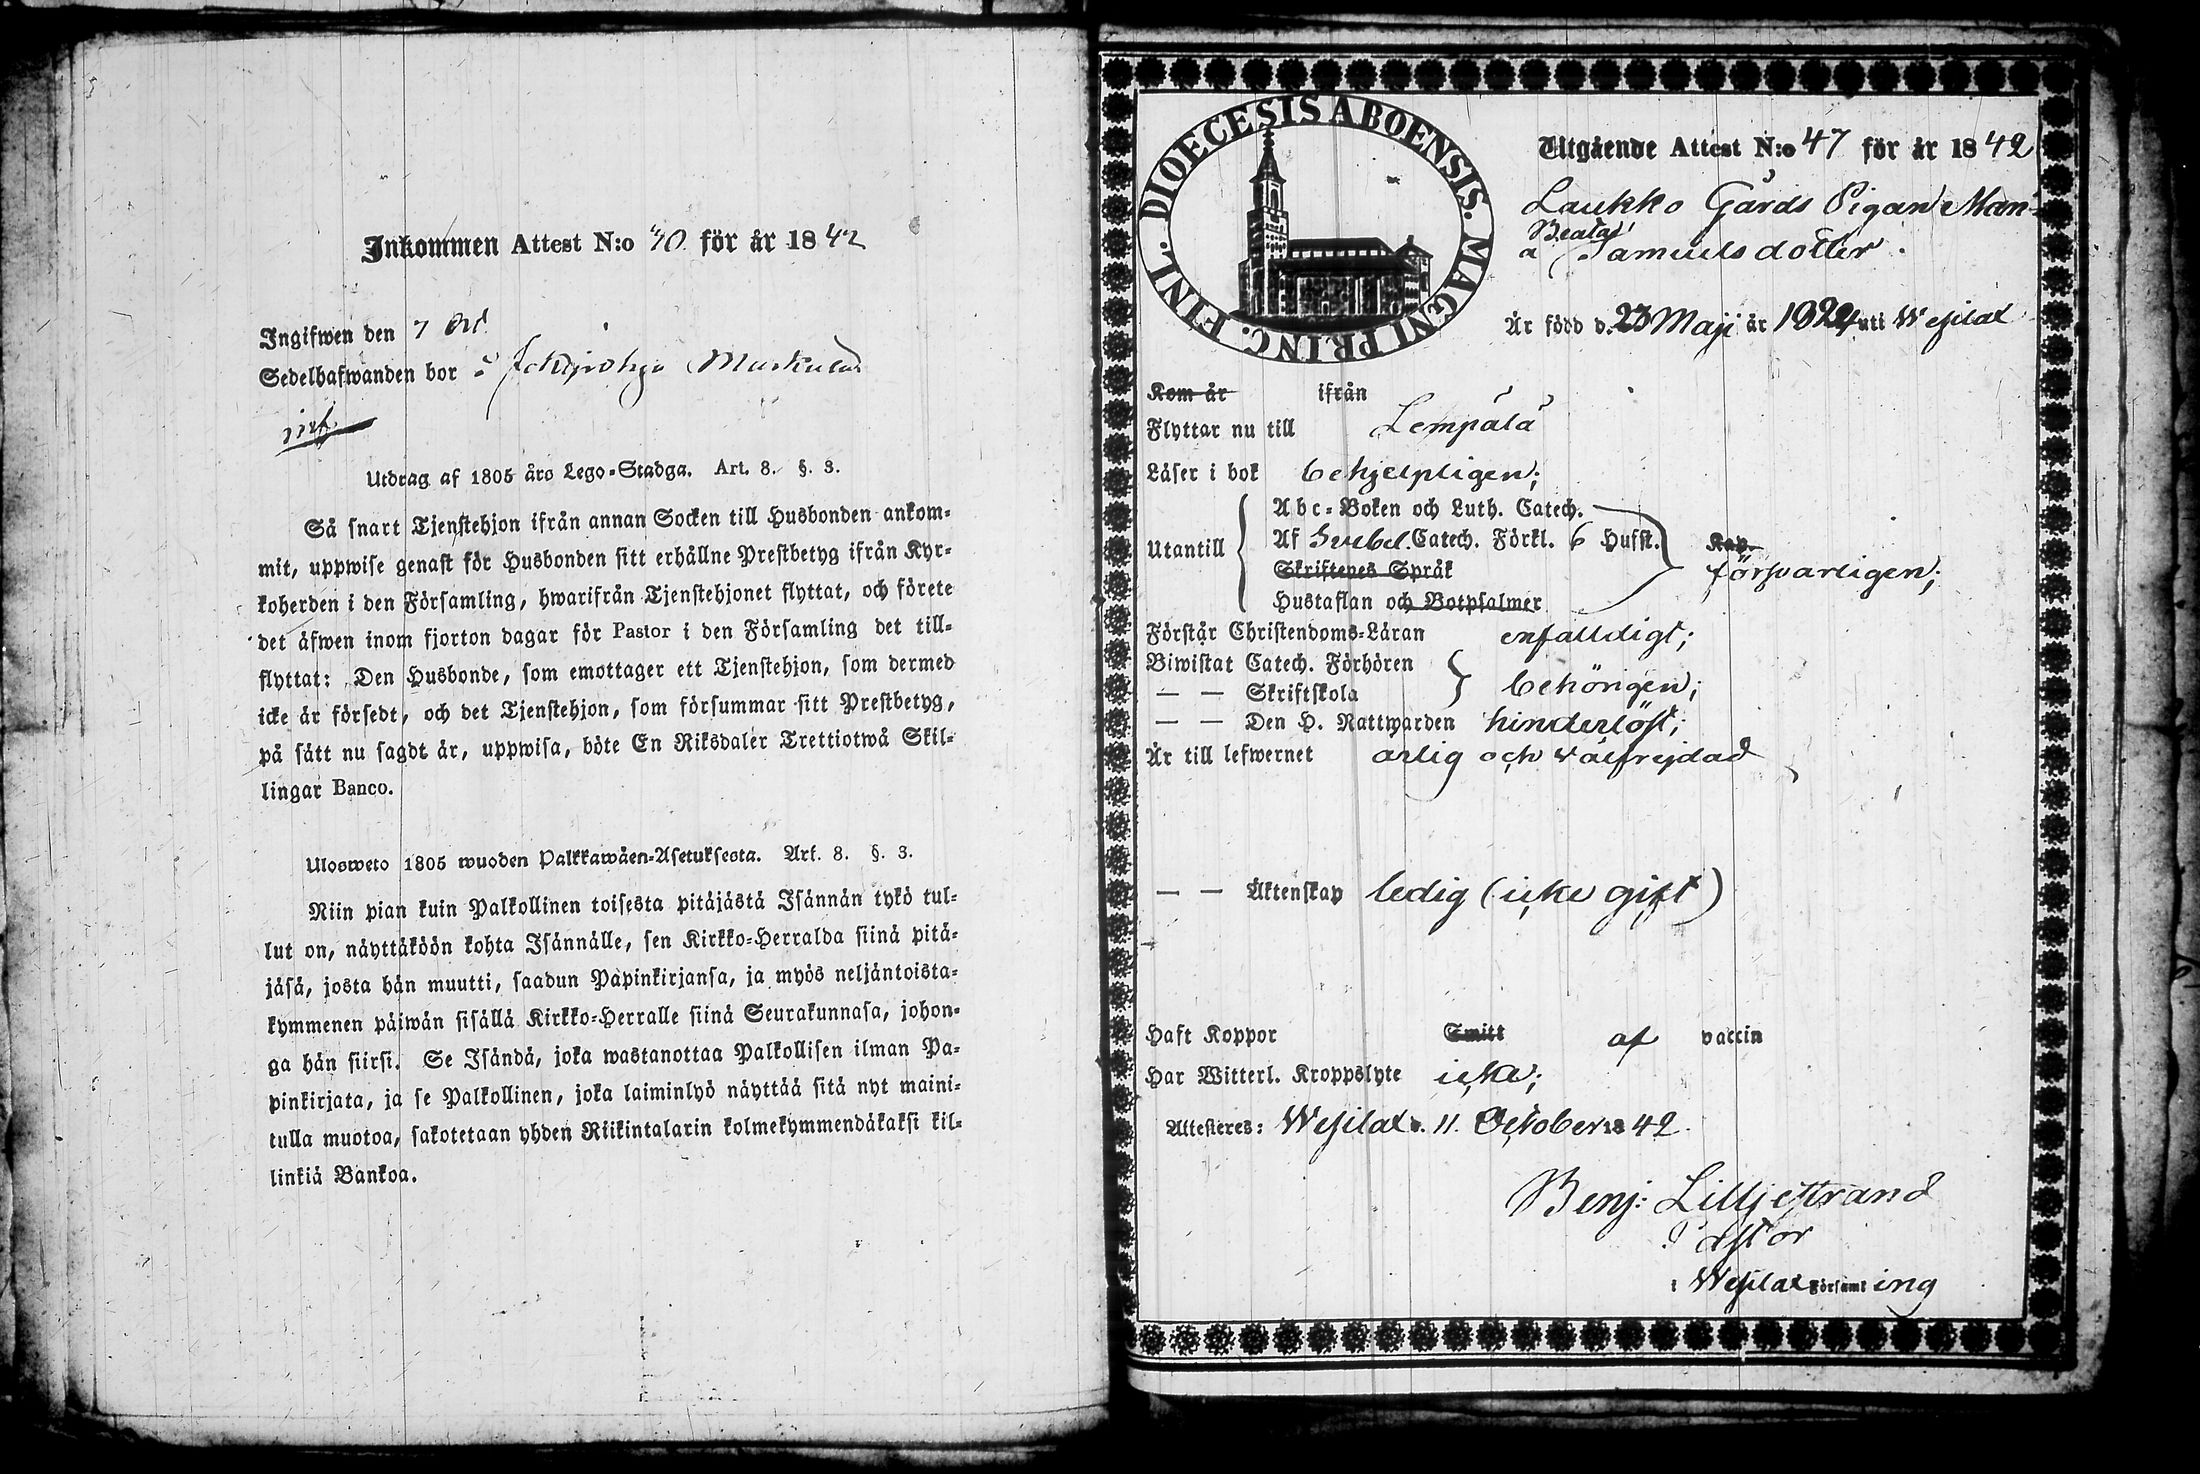 Inkommen Attest N:o 40 för år 1842
Ingifwen den 7
Sedelhafwanden bor
Utdrag af 1805 års Lego-Stadga. Art. 8. §. 3.
Så snart Tjenstehjon ifrån annan Socken till Husbonden ankom-
mit, uppwise genast för Husbonden sitt erhållne Prestbetyg ifrån Kyr-
koherden i den Församling, hwarifrån Tjenstehjonet flyttat, och förete
det äfwen inom fjorton dagar för Pastor i den Församling det till-
flyttat: Den Husbonde, som emottager ett Tjenstehjon, som dermed
icke är försedt, och det Tjenstehjon, som försummar sitt Prestbetyg,
på sätt nu sagdt är, uppwisa, böte En Riksdaler Trettiotwå Skil-
lingar Banco.
Ulosweto 1805 wuoden Palkkawäen-Asetuksesta. Art. 8. §. 3.
Niin pian kuin Palkollinen toisesta pitäjästä Isännän tykö tul-
lut on, näyttäköön kohta Isännälle, sen Kirkko-Herralda siinä pitä-
jäsä, josta hän muutti, saadun Papinkirjansa, ja myös neljäntoista-
kymmenen päiwän sisällä Kirkko-Herralle siinä Seurakunnasa, johon-
ga hän siirsi. Se Isändä, joka wastanottaa Palkollisen ilman Pa-
pinkirjata, ja se Palkollinen, joka laiminlyö näyttää sitä nyt maini-
tulla muotoa, sakotetaan yhden Riikintalarin kolmekymmendäkaksi kil-
linkiä Bankoa.
DIOECESIS ABOENSIS. MAGNI PRINC. FINL.
Utgående Attest N:o 47 för år 1842
Laukko Gårds Pigan Mari-
Beata
a Samuelsdotter.
Är född d. 23 Maji år 1824 uti Wesilax
Kom år ifrån
Flyttar nu till Lempälä
Läser i bok behjelpligen;
Abc-Boken och Luth. Catech.
Utantill Af Svebel. Catech. Förkl. 6 Hufst. Kap.
Skriftenes Språk försvarligen;
Hustaflan och Botpsalmer
Förstår Christendoms-Läran enfaldigt;
Biwistat Catech. Förhören
— — Skriftskola behörigen;
— — Den H. Nattwarden hinderlöst;
Är till lefwernet ärlig och välfrejdad
— — Äktenskap ledig (icke gift)
Haft Koppor Smitt af vaccin
Har Witterl. Kroppslyte icke;
Attesteres: Wesilax d. 11. October 1842.
Benj: Lilljestrand
Pastor
i Wesilax Församling